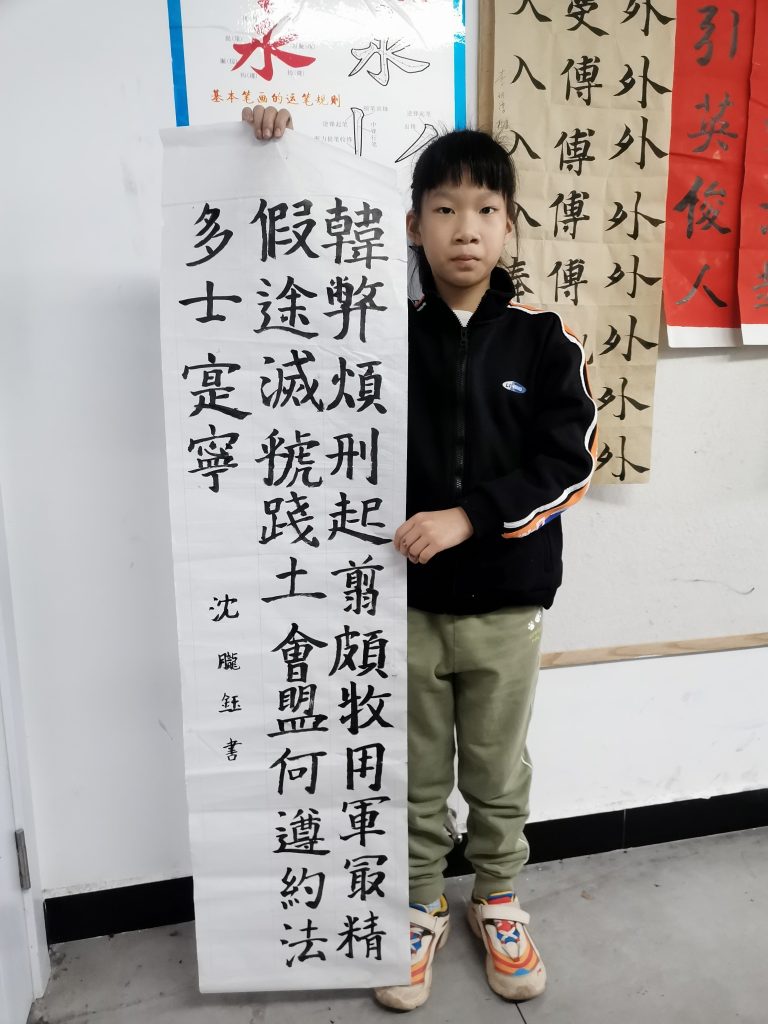 韓弊煩刑起翦頗牧用軍冣精
假途滅虢踐土會盟何遵約法
多士寔寧
沈朧鈺書
永
永
基本笔画的运笔规则
逆锋起笔
中锋行笔
外外外外外外外外
傅傅傅傅
入入入入
引英俊人